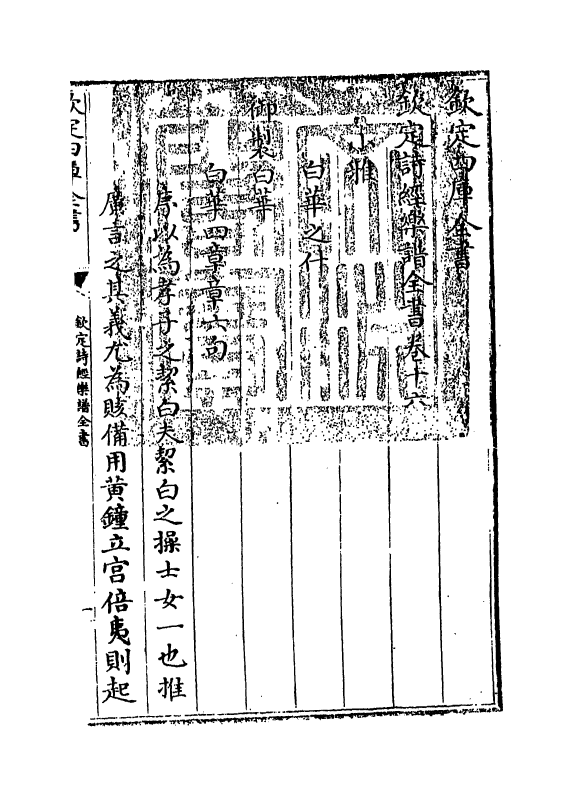 欽定四庫全書
欽定詩經樂譜全書卷十六
小雅
白華之什
御製白華
白華四章章六句
序以為孝子之絜白夫絜白之操士女一也推
廣言之其義尤為賅備用黃鐘立宫倍夷則起
欽定四庫全書
欽定詩經樂譜全書
一